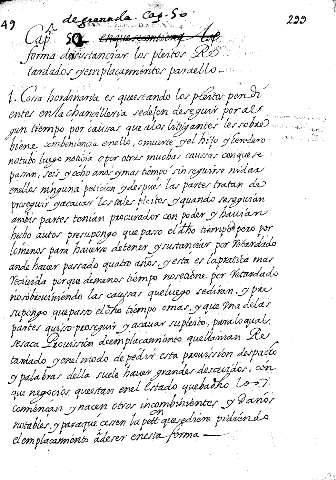 49 de granada Cap. 50 299
Capº 50
forma de sustanciar los pleitos Re
tardados y emplaçamientos para ello.
1. Cosa hordinaria es que estando los pleitos pendi
entes en la chancilleria se dejen de seguir por al
gun tiempo por causas que a los litigantes les sobre
biene, o muerte, y el hijo y heredero
no tubo luego noticia o por otras muchas causas con que se
pasan, seis, y ocho años y mas tiempo sin seguirse ni dar
en ellos ninguna peticion y despues las partes tratan de
proseguir y acauar los tales pleitos, y quando se seguian
ambas partes tenian procurador con poder, y hauian
hecho autos presupongo que paso el dho tiempo pero por
lo menos para hauerse de tener y sustanciar por Retardado
an de hauer passado quatro años, y esta es la pratica mas
Reciuida porque de menos tiempo no se tiene por Retardado
no sobreuiniendo las causas que luego se diran, y pre
supongo que paso el dho tiempo o mas, y que una de las
partes quiso proseguir y acauar su pleito, para lo qual
se saca Prouission de emplacamiento que llaman Re
tardado y en el modo de pedir esta prouission despacho
y palabras della suele hauer grandes descuidos, con
que negocios que estan en el estado que ha dho
comiençan y nacen otros incombinientes y daños
notables, y para que cesen la pettᵒⁿ que se diere pidiendo
el emplaçamento a de ser en esta forma —